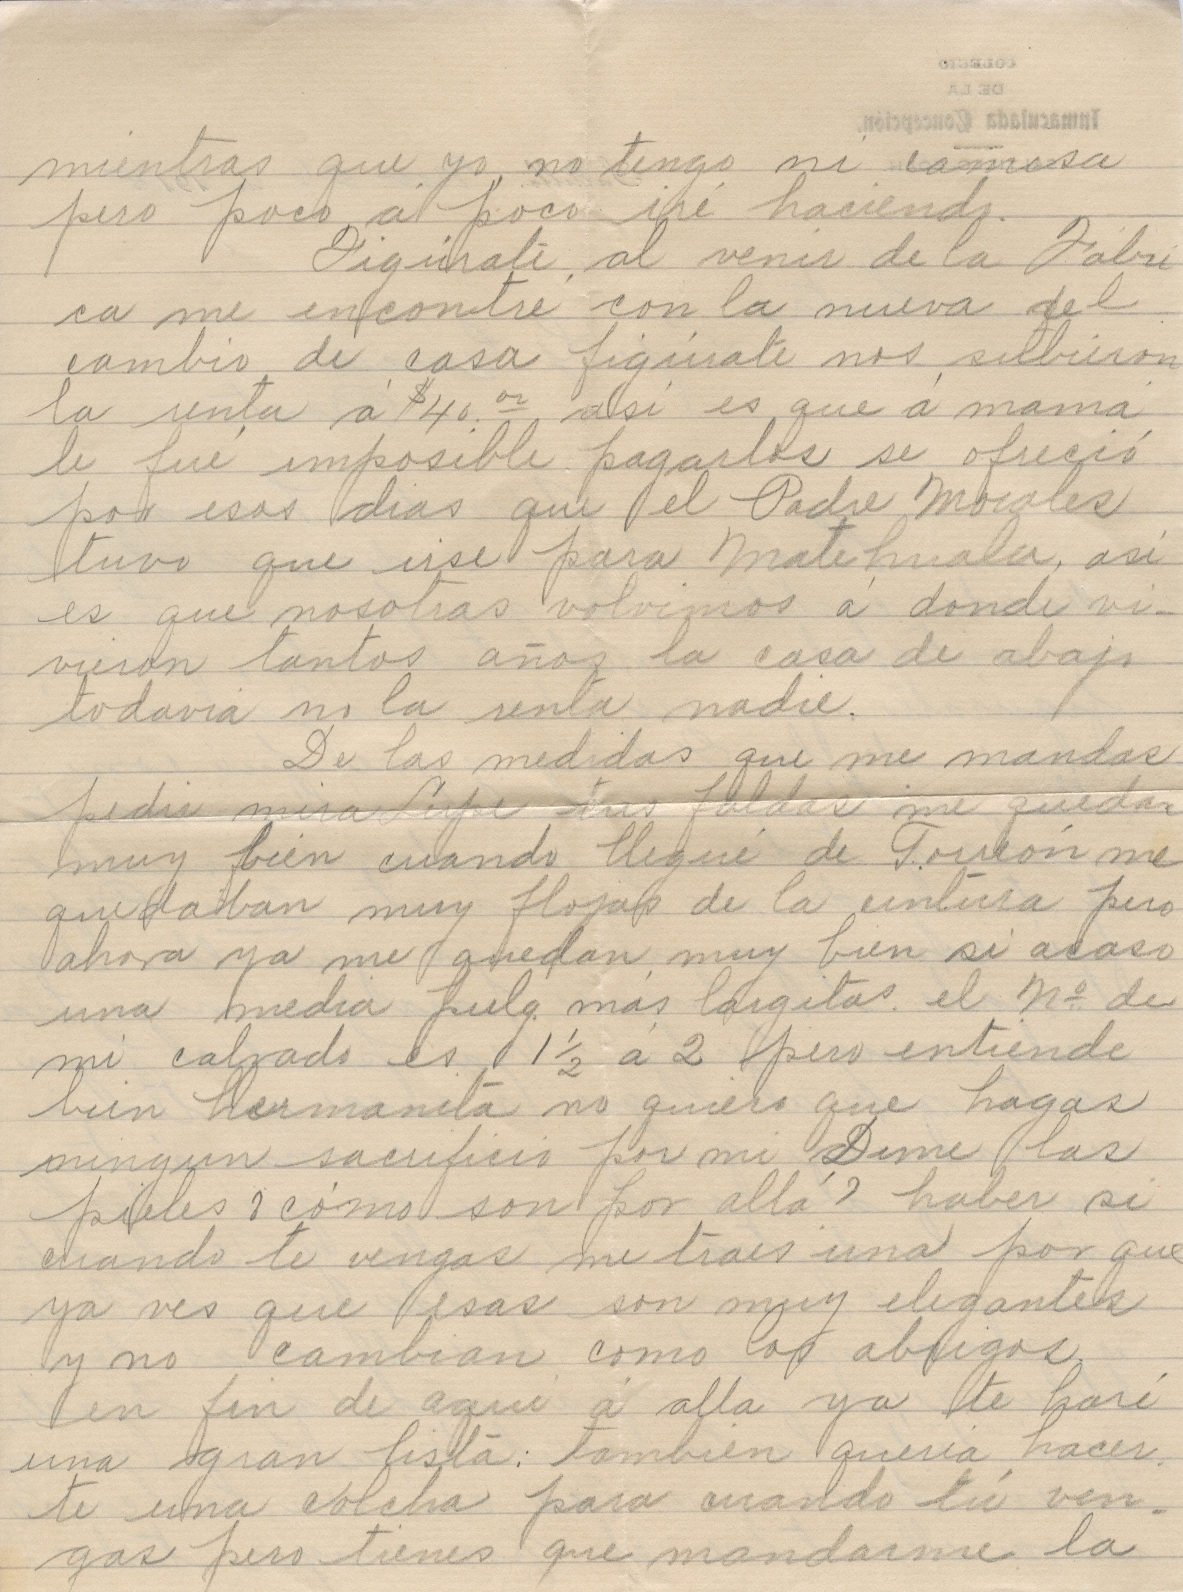 COLEGIO
DE LA
Inmaculada Concepción.
mientras que yo no tengo ni camisa
pero poco á poco iré haciendo.
Figúrate, al venir de la Fábri
ca me encontré con la nueva del
cambio de casa figúrate nos subieron
la renta á $40.oo así es que á mamá
le fué imposible pagarlos se ofreció
por esos dias que el Padre Morales
tuvo que irse para Matehuala, asi
es que nosotras volvimos á donde vi-
vieron tantos años la casa de abajo
todavia no la renta nadie.
De las medidas que me mandas
pedir mira Lupe tus faldas me quedan
muy bien cuando llegué de Torreón me
quedaban muy flojas de la cintura pero
ahora ya me quedan muy bien si acaso
una media pulg. más largitas. el No. de
mi calzado es 1 1/2 á 2 pero entiende
bien hermanita no quiero que hagas
ningun sacrificio por mi Dime las
pieles ? cómo son por allá ? haber si
cuando te vengas me traes una por que
ya ves que esas son muy elegantes
y no cambian como los abrigos.
en fin de aqui á alla ya te haré
una gran lista: tambien queria hacer.
te una colcha para cuando tú ven-
gas pero tienes que mandarme la